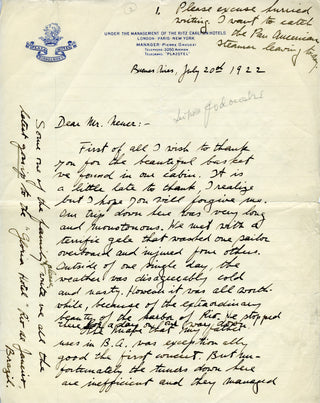 1.
Please excuse hurried
writing. I want to catch
the Pan American
steamer leaving today
UNDER THE MANAGEMENT OF THE RITZ CARLTON HOTELS
LONDON - PARIS - NEW YORK
MANAGER: PIERRE
TELEPHONE: AVENIDA
TELEGRAMS: "PLAZOTEL"
PLAZA HOTEL
BUENOS AIRES
Buenos Aires, July 20th 1922
Dear Mr. :-
First of all I wish to thank
you for the beautiful basket
we found in our cabin. It is
a little late to thank, I realize
but I hope you will forgive me.
Our trip down here was very long
and monotonous. We met with a
terrific gale that washed one sailor
overboard and injured four others.
Outside of one single day, the
weather was disagreeably cold
and nasty. However it was all worth-
while, because of the extraordinary
beauty of the harbor of Rio. We stopped
there for a day on our way down.
The that my father
uses in B.A. was exceptionally
good the first concert. But un-
fortunately the tuners down here
are inefficient and they managed
Some one of the family write
letters going to the "Gloria Hotel - Rio de Janeiro
Brazil